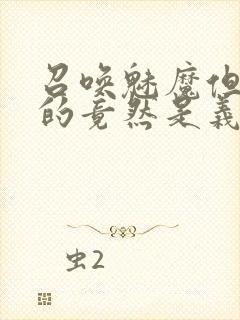 召唤魅魔但
的竟然是义
虫2